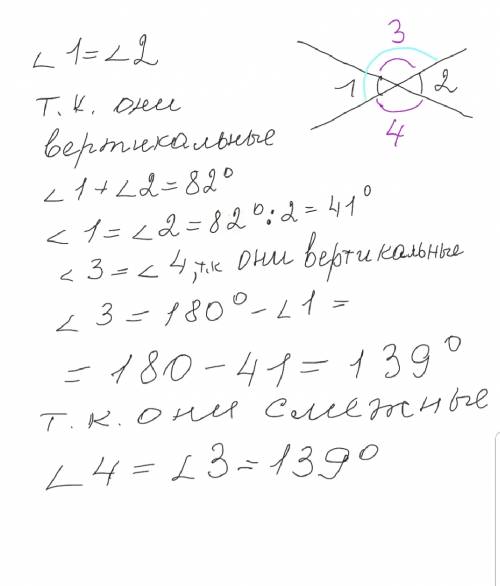 ∠1=∠2
т.к. они
вертикальные
∠1+∠2=82°
∠1=∠2=82°:2=41°
∠3=∠4, т.к они вертикальные
∠3=180°-∠1=
=180-41=139°
т.к. они смежные
∠4=∠3=139°
3
1
2
4